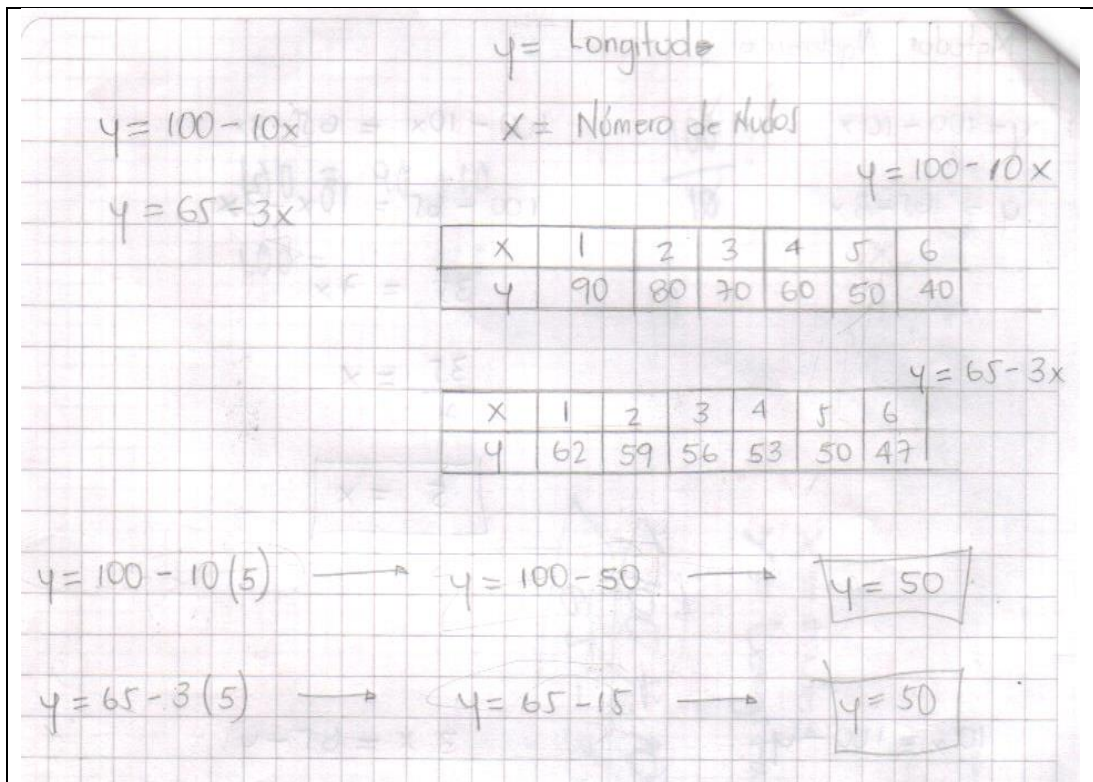 y = Longitude
y = 100 - 10x
x = Número de Nudos
y = 100 - 10x
y = 65 - 3x
x 1 2 3 4 5 6
y 90 80 70 60 50 40
y = 65 - 3x
x 1 2 3 4 5 6
y 62 59 56 53 50 47
y = 100 - 10(5) → y = 100 - 50 → y = 50
y = 65 - 3(5) → y = 65 - 15 → y = 50